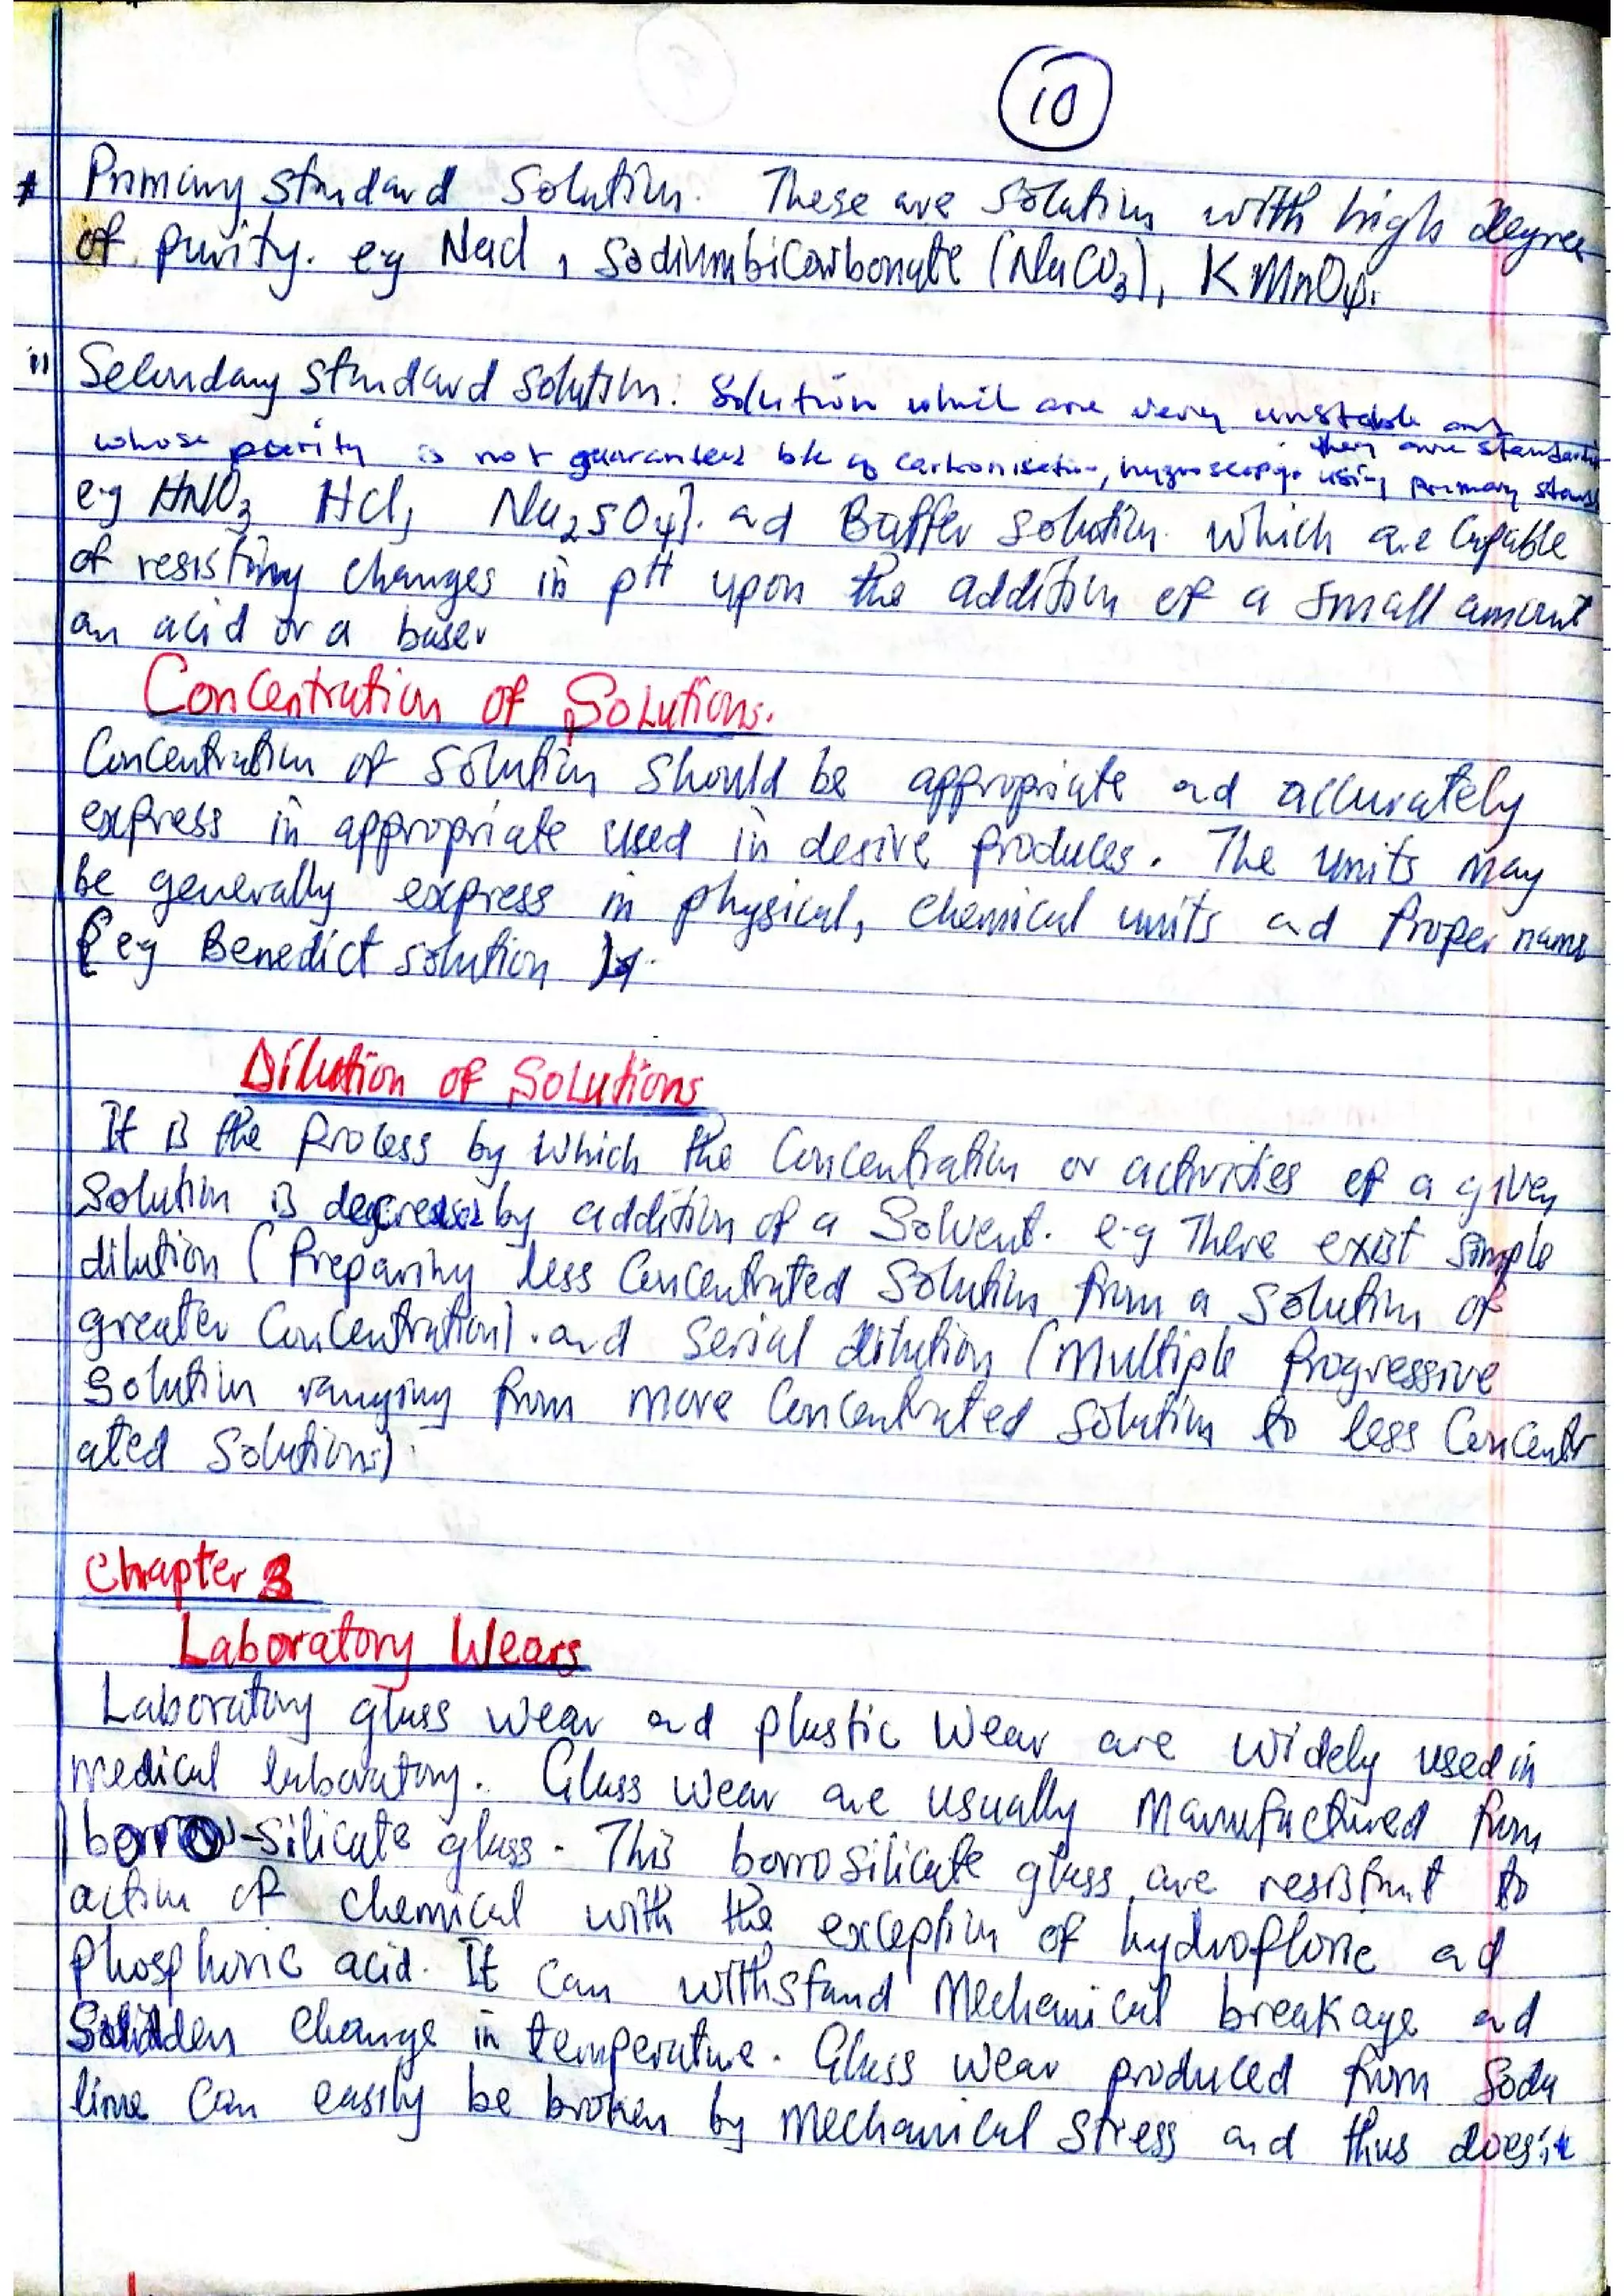 10
* Primary standard solution. These are solution with high degree
of purity. eg Nacl, Sodiumbicarbonate (NaCO3), KMnO4.
ii Secondary standard solution: Solution which are very unstable and
whose purity is not guaranteed b/c of carbonisation, hygroscopy. they are standardi
using primary stand
eg HNO3 HCl, Na2SO4]. ad Buffer solution. which are capable
of resisting changes in pH upon the addition of a small amount
an acid or a base.
Concentration of Solutions.
Concentration of solution should be appropriate ad accurately
express in appropriate used in desire produces. The units may
be generally express in physical, chemical units ad Proper name
(eg Benedict solution ).
Dilution of Solutions
It is the process by which the concentration or activities of a given
Solution is decreased by addition of a Solvent. e-g There exist simple
dilution (Preparing less Concentrated Solution from a Solution of
greater Concentration). and Serial dilution (Multiple Progressive
Solution ranging from more Concentrated Solution to less Concentr
ated Solutions)
Chapter 3
Laboratory Wears
Laboratory glass wear and plastic wear are widely used in
medical laboratory. Glass wear are usually Manufactured from
borro-silicate glass. This borrosilicate glass are resistant to
action of chemical with the exception of hydrofloric ad
phosphoric acid. It can withstand Mechanical breakage ad
Sudden change in temperature. Glass wear produced from Soda
lime can easily be broken by Mechanical Stress and thus does't